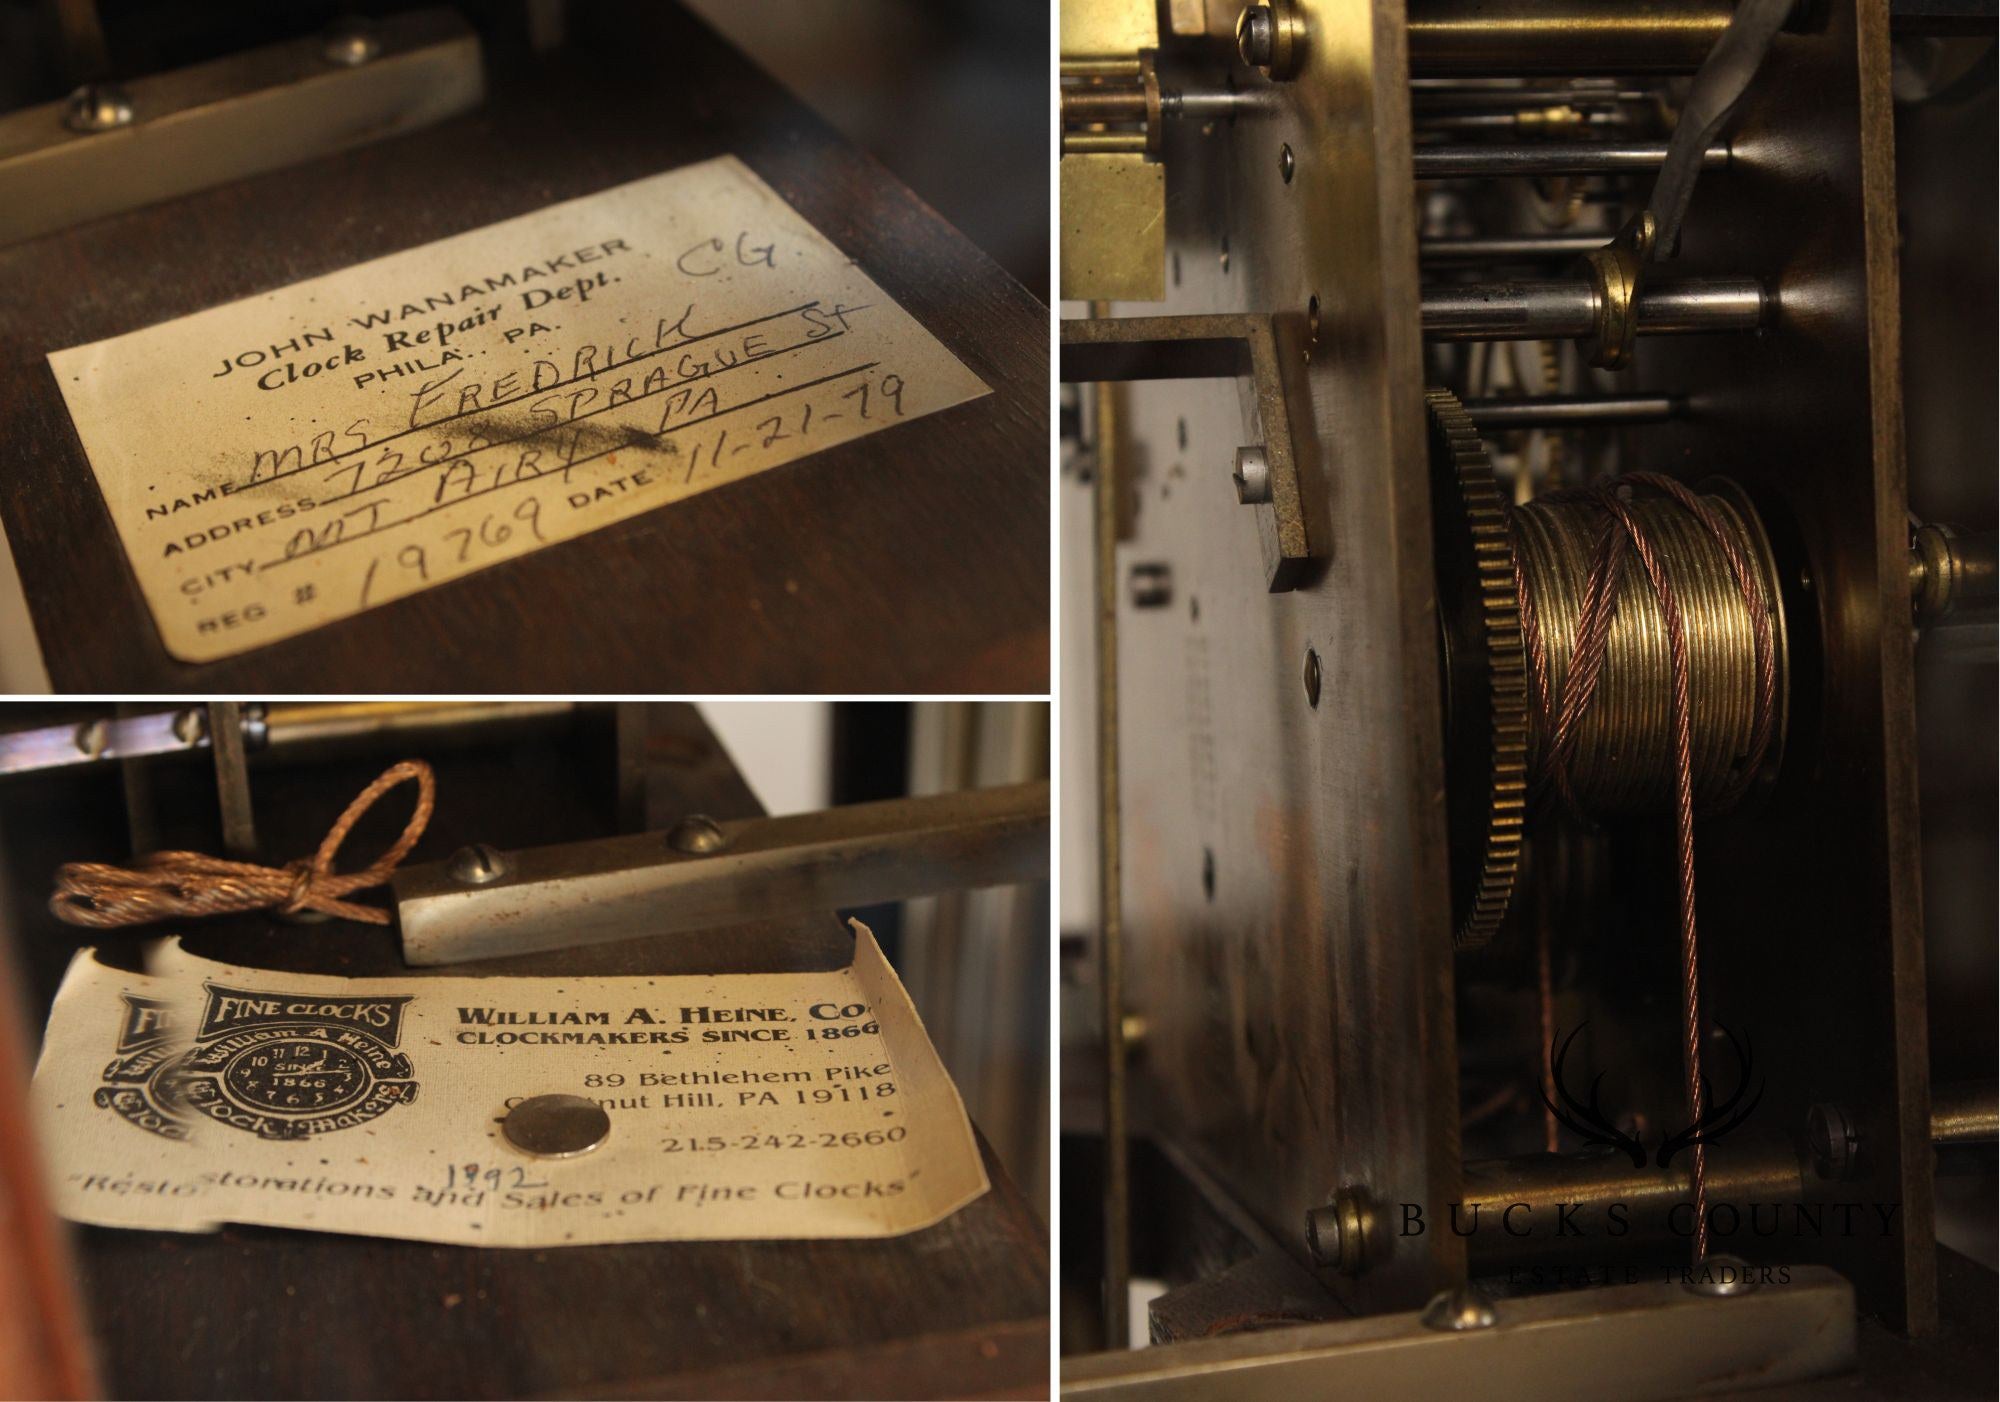 JOHN WANAMAKER
Clock Repair Dept. CG.
PHILA., PA.
NAME MRS FREDRICK
ADDRESS 7208 SPRAGUE St
CITY MT AIRY PA
REG # 19769 DATE 11-21-79
FINE CLOCKS
William A Heine
SINCE
1866
Clock Makers
WILLIAM A. HEINE, CO
CLOCKMAKERS SINCE 1866
89 Bethlehem Pike
nut Hill, PA 19118
215-242-2660
1992
"Resto storations and Sales of Fine Clocks"
BUCKS COUNTY
ESTATE TRADERS